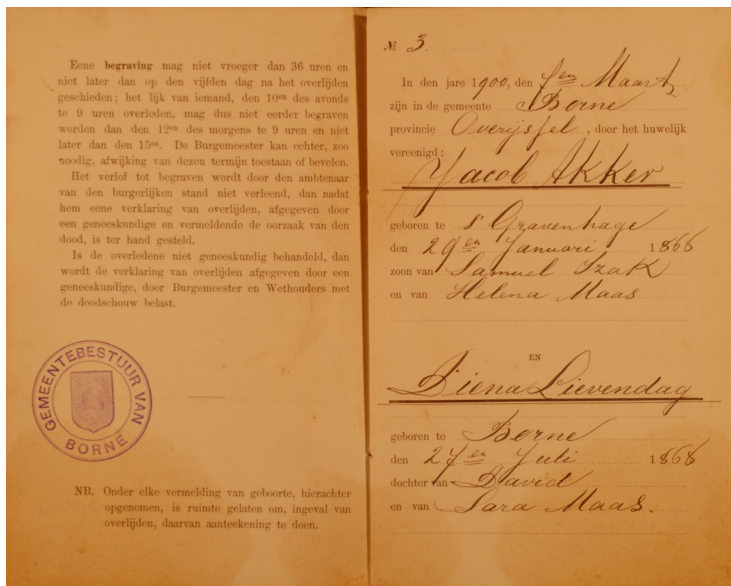 Eene begraving mag niet vroeger dan 36 uren en
niet later dan op den vijfden dag na het overlijden
geschieden; het lijk van iemand, den 10en des avonds
te 9 uren overleden, mag dus niet eerder begraven
worden dan den 12en des morgens te 9 uren en niet
later dan den 15en. De Burgemeester kan echter, zoo
noodig, afwijking van dezen termijn toestaan of bevelen.
Het verlof tot begraven wordt door den ambtenaar
van den burgerlijken stand niet verleend, dan nadat
hem eene verklaring van overlijden, afgegeven door
een geneeskundige en vermeldende de oorzaak van den
dood, is ter hand gesteld.
Is de overledene niet geneeskundig behandeld, dan
wordt de verklaring van overlijden afgegeven door een
geneeskundige, door Burgemeester en Wethouders met
de doodschouw belast.
GEMEENTEBESTUUR VAN
BORNE
NB. Onder elke vermelding van geboorte, hierachter
opgenomen, is ruimte gelaten om, ingeval van
overlijden, daarvan aanteekening te doen.
№ 3.
In den jare 1900, den Maart
zijn in de gemeente Borne
provincie Overijssel, door het huwelijk
vereenigd:
Jacob Akker
geboren te s' Gravenhage
den 29en Januari 1868
zoon van Samuel Izak
en van Helena Maas
EN
Diena Lievendag
geboren te Borne
den 27en Juli 1868
dochter van David
en van Sara Maas.